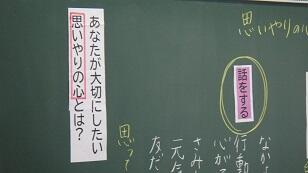 あなたが大切にしたい
思いやりの心とは？
思いやりの心
話をする
なか
行動
心が
さみ
元気
友だ
思って